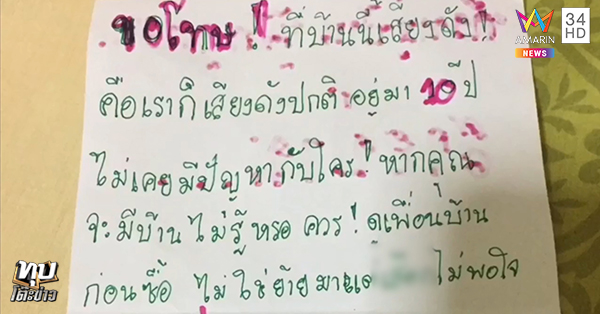 AMARIN
NEWS
34
HD
ขอโทษ! ที่บ้านนี้เสียงดัง!
คือเราก็เสียงดังปกติ อยู่มา 10 ปี
ไม่เคยมีปัญหากับใคร! หากคุณ
จะมีบ้านไม่รู้หรอ ควร! ดูเพื่อนบ้าน
ก่อนซื้อ ไม่ใช่ย้ายมาแล้ว ไม่พอใจ
ทุบ
โต๊ะข่าว